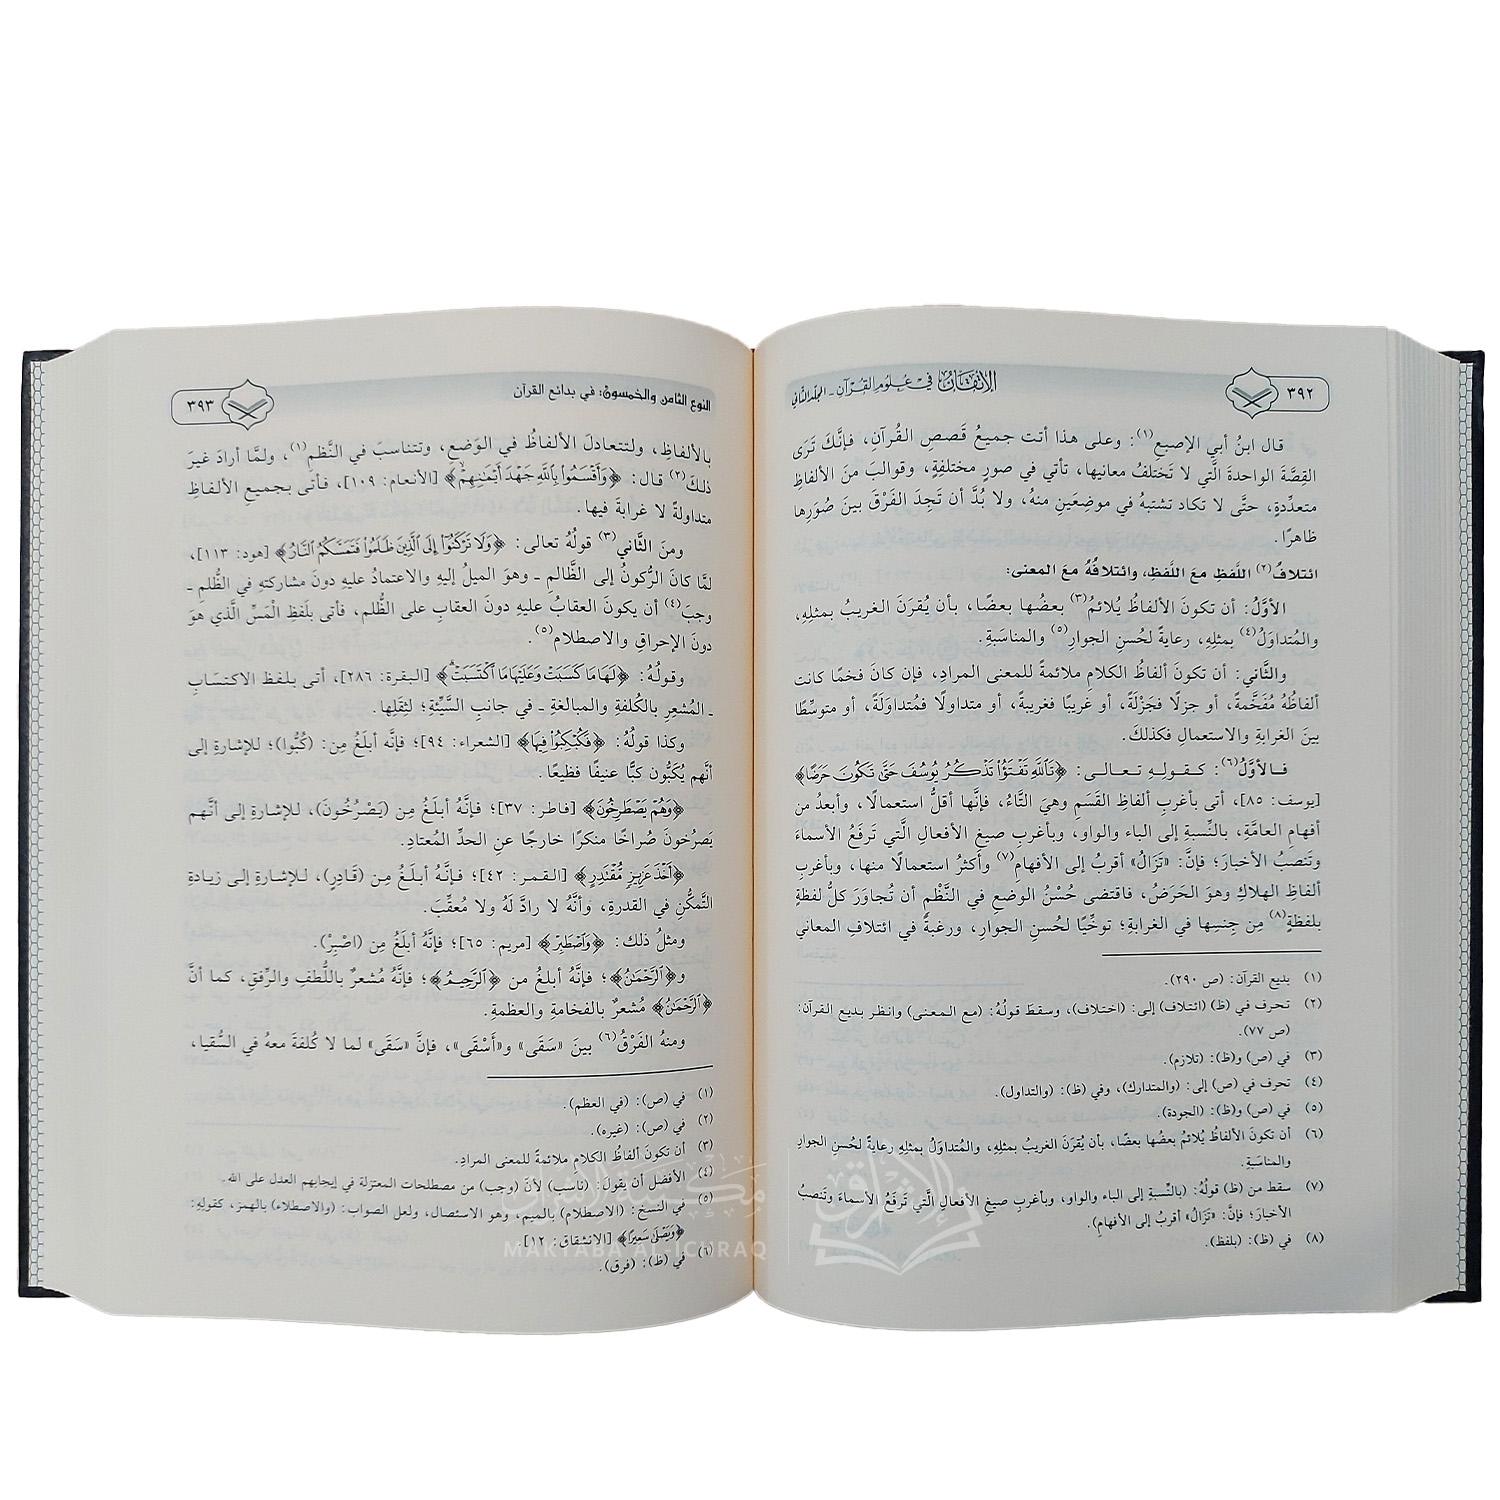 ٣٩٢
الإتقان في علوم القرآن - المجلد الثاني
قال ابنُ أبي الإصبع (١): وعلى هذا أتت جميعُ قَصصِ القُرآنِ، فإنَّكَ تَرَى
القِصَّةَ الواحدةَ الَّتي لا تَختلفُ معانيها، تأتي في صورٍ مختلفةٍ، وقوالبَ منَ الألفاظِ
متعدِّدةٍ، حتَّى لا تكاد تشتبهُ في موضِعَينِ منهُ، ولا بُدَّ أن تَجِدَ الفَرْقَ بينَ صُوَرِها
ظاهرًا.
ائتلافُ (٢) اللَّفظِ معَ اللَّفظِ، وائتلافُهُ معَ المعنى:
الأوَّلُ: أن تكونَ الألفاظُ يُلائمُ (٣) بعضُها بعضًا، بأن يُقرَنَ الغريبُ بمثلِهِ،
والمُتداوَلُ (٤) بمثلِهِ، رعايةً لحُسنِ الجوارِ (٥) والمناسَبةِ.
والثَّاني: أن تكونَ ألفاظُ الكلامِ ملائمةً للمعنى المرادِ، فإن كانَ فخمًا كانت
ألفاظُهُ مُفَخَّمةً، أو جزلًا فجَزْلَةً، أو غريبًا فغريبةً، أو متداولًا فمُتداوَلَةً، أو متوسِّطًا
بينَ الغرابةِ والاستعمالِ فكذلكَ.
فالأوَّلُ (٦): كقولِهِ تعالى: ﴿تَاللَّهِ تَفْتَؤُا تَذْكُرُ يُوسُفَ حَتَّى تَكُونَ حَرَضًا﴾
[يوسف: ٨٥]، أتى بأغربِ ألفاظِ القَسَمِ وهيَ التَّاءُ، فإنَّها أقلُّ استعمالًا، وأبعدُ من
أفهامِ العامَّةِ، بالنِّسبةِ إلى الباء والواو، وبأغربِ صيغِ الأفعالِ الَّتي تَرفَعُ الأسماءَ
وتَنصبُ الأخبارَ؛ فإنَّ: «تَزَالُ» أقربُ إلى الأفهامِ (٧) وأكثرُ استعمالًا منها، وبأغربِ
ألفاظِ الهلاكِ وهوَ الحَرَضُ، فاقتضى حُسْنُ الوضعِ في النَّظْمِ أن تُجاوَرَ كلُّ لفظةٍ
بلفظةٍ (٨) مِن جِنسِها في الغرابةِ؛ توخِّيًا لحُسنِ الجوارِ، ورغبةً في ائتلافِ المعاني
(١) بديع القرآن: (ص ٢٩٠).
(٢) تحرف في (ظ) (ائتلاف) إلى: (اختلاف)، وسقطَ قولُهُ: (مع المعنى) وانظر بديع القرآن:
(ص ٧٧).
(٣) في (ص) و(ظ): (تلازم).
(٤) تحرف في (ص) إلى: (والمتدارك)، وفي (ظ): (والتداول).
(٥) في (ص) و(ظ): (الجودة).
(٦) أن تكونَ الألفاظُ يُلائمُ بعضُها بعضًا، بأن يُقرَنَ الغريبُ بمثلِهِ، والمُتداوَلُ بمثلِهِ رعايةً لحُسنِ الجوارِ
والمناسَبةِ.
(٧) سقط من (ظ) قولُهُ: (بالنِّسبةِ إلى الباء والواو، وبأغربِ صيغِ الأفعالِ الَّتي تَرفَعُ الأسماءَ وتَنصبُ
الأخبارَ؛ فإنَّ: "تَزَالُ" أقربُ إلى الأفهامِ).
(٨) في (ظ): (بلفظ).
النوع الثامن والخمسون: في بدائع القرآن
٣٩٣
بالألفاظِ، ولتتعادلَ الألفاظُ في الوَضعِ، وتتناسبَ في النَّظمِ (١)، ولمَّا أرادَ غيرَ
ذلكَ (٢) قال: ﴿وَأَقْسَمُوا بِاللَّهِ جَهْدَ أَيْمَانِهِمْ﴾ [الأنعام: ١٠٩]، فأتى بجميعِ الألفاظِ
متداولةً لا غرابةَ فيها.
ومنَ الثَّاني (٣) قولُهُ تعالى: ﴿وَلَا تَرْكَنُوا إِلَى الَّذِينَ ظَلَمُوا فَتَمَسَّكُمُ النَّارُ﴾ [هود: ١١٣]،
لمَّا كانَ الرُّكونُ إلى الظَّالمِ - وهوَ الميلُ إليهِ والاعتمادُ عليهِ دونَ مشاركتهِ في الظُّلمِ -
وجبَ (٤) أن يكونَ العقابُ عليهِ دونَ العقابِ على الظُّلمِ، فأتى بلَفظِ الْمَسِّ الَّذي هوَ
دونَ الإحراقِ والاصطلام (٥).
وقولُهُ: ﴿لَهَا مَا كَسَبَتْ وَعَلَيْهَا مَا اكْتَسَبَتْ﴾ [البقرة: ٢٨٦]، أتى بلفظ الاكتسَابِ
- المُشعِرِ بالكُلفةِ والمبالغةِ - في جانبِ السَّيِّئةِ؛ لثِقَلِها.
وكذا قولُهُ: ﴿فَكُبْكِبُوا فِيهَا﴾ [الشعراء: ٩٤]؛ فإنَّه أبلَغُ مِن: (كُبُّوا)؛ للإشارةِ إلى
أنَّهم يُكَبُّون كبًّا عنيفًا فظيعًا.
﴿وَهُمْ يَصْطَرِخُونَ﴾ [فاطر: ٣٧]؛ فإنَّهُ أبلَغُ مِن (يَصْرُخُونَ)، للإشارةِ إلى أنَّهم
يَصرُخونَ صُراخًا منكرًا خارجًا عنِ الحدِّ المُعتادِ.
﴿أَخْذَ عَزِيزٍ مُّقْتَدِرٍ﴾ [القمر: ٤٢]؛ فإنَّهُ أبلَغُ مِن (قَادِرٍ)، للإشارةِ إلى زيادةِ
التَّمكُّنِ في القدرةِ، وأنَّهُ لا رادَّ لَهُ ولا مُعقِّبَ.
ومثلُ ذلك: ﴿وَاصْطَبِرْ﴾ [مريم: ٦٥]؛ فإنَّهُ أبلَغُ مِن (اصْبِرْ).
و﴿الرَّحْمَٰنُ﴾؛ فإنَّهُ أبلغُ من ﴿الرَّحِيمُ﴾؛ فإنَّهُ مُشعرٌ باللُّطفِ والرِّفقِ، كما أنَّ
﴿الرَّحْمَٰنُ﴾ مُشعرٌ بالفخامةِ والعظمةِ.
ومنهُ الفَرْقُ (٦) بينَ «سَقَى» و«أَسْقَى»، فإنَّ «سَقَى» لما لا كُلفةَ معهُ في السُّقيا،
(١) في (ص): (في العظم).
(٢) في (ص): (غيره).
(٣) أن تكونَ ألفاظُ الكلامِ ملائمةً للمعنى المرادِ.
(٤) الأفضل أن يقولَ: (ناسَب) لأنَّ (وجب) من مصطلحات المعتزلة في إيجابهم العدل على الله.
(٥) في النسخ: (الاصطلام) بالميم، وهو الاستئصال، ولعل الصواب: (والاصطلاء) بالهمز، كقولهِ:
﴿وَيَصْلَىٰ سَعِيرًا﴾ [الانشقاق: ١٢].
(٦) في (ظ): (فرق).
MAKTABA AL-ICHRAQ